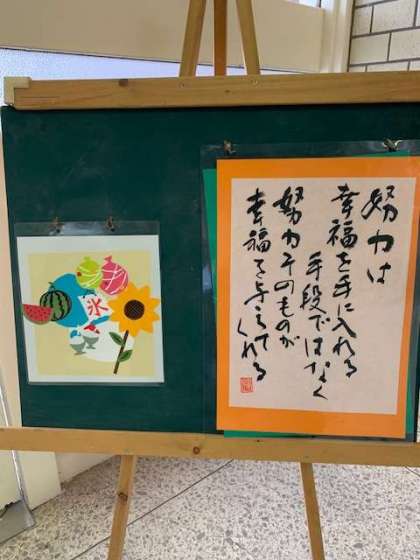 努力は
幸福を手に入れる
手段ではなく
努力そのものが
幸福を与えて
くれる
氷